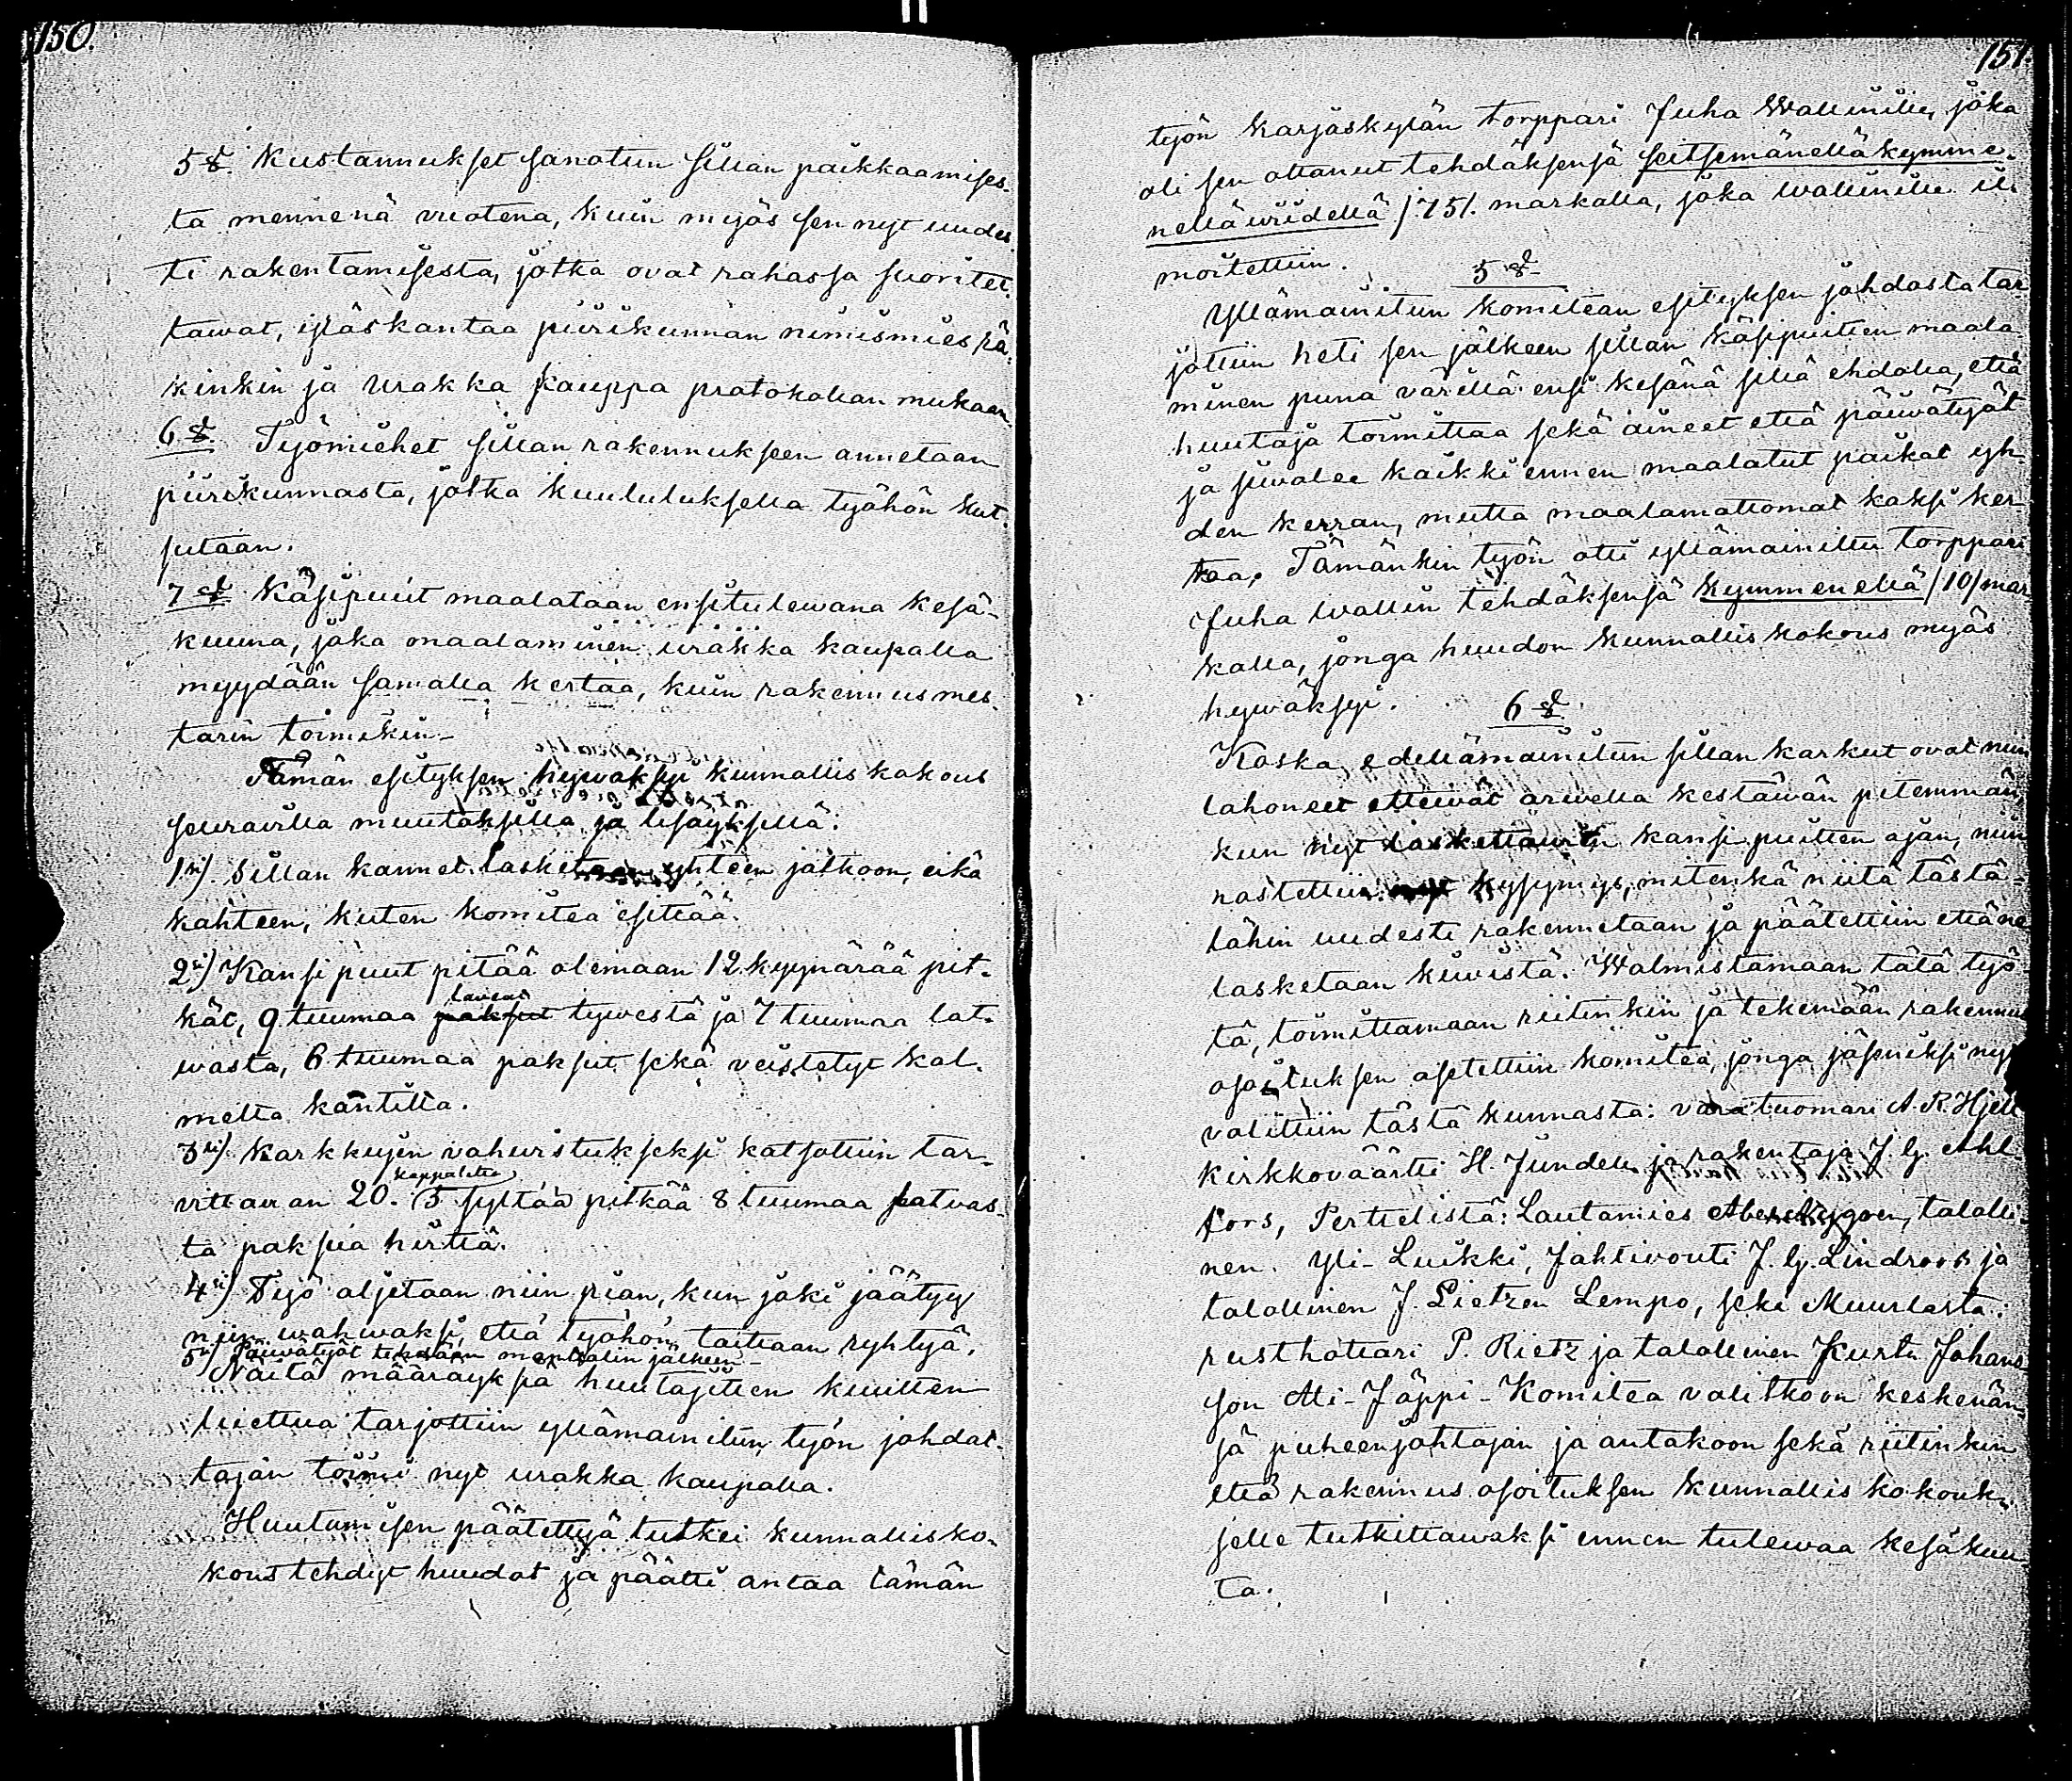 150.
5 §. Kustannukset sanotun sillan paikkaamises-
ta mennenä vuotena, kuin myös sen nyt uudes-
ti rakentamisesta, jotka ovat rahassa suoritet-
tawat, ylöskantaa piirikunnan nimismies rä-
kinkin ja urakka kauppa protokollan mukaan.
6 §. Työmiehet sillan rakennukseen annetaan
piirikunnasta, jotka kuululuksella työhön kut-
sutaan.
7 § Käsipuut maalataan ensitulewana kesä-
kuuna, joka maalaminen urakka kaupalla
myydään samalla kertaa, kuin rakennusmes-
tarin toimikin-
Tämän esityksen hywäksyi kunnallis kokous
seuraavilla muutoksilla ja lisäyksillä:
1si). Sillan kannet lasketaan yhteen jatkoon, eikä
kahteen, kuten komitea esittää.
2si) Kansipuut pitää olemaan 12 kyynärää pit-
kät, 9 tuumaa paksut laveat tywestä ja 7 tuumaa lat-
wasta, 6 tuumaa paksut sekä veistetyt kol-
melta kantilta.
3si). Karkkujen vahwistukseksi katsottiin tar-
vittavan 20. kappaletta 5 syltää pitkää 8 tuumaa latvas-
ta paksua hirttä.
4si) Työ aljetaan niin pian, kun joki jäätyy
niin wahwaksi, että työhön taittaan ryhtyä.
5si) Päivätyöt tehdään manttalin jälkeen-
Näitä määräyksiä huutajitten kuulten
luettua tarjottiin ylläämainitun työn johdat-
tajan toimi nyt urakka kaupalla.
Huutamisen päätettyä tutkei kunnallisko-
kous tehdyt huudot ja päätti antaa tämän
151.
työn Karjaskylän torppari Juha Wallinille, joka
oli sen ottanut tehdäksensä seitsemänelläkymme-
nelläwiidellä /75/. markalla, joka Wallinille il-
moitettiin.
5 §
Ylläämainitun komitean esityksen johdosta tar
jottiin heti sen jälkeen sillan käsipuitten maala
minen puna värillä ensi kesänä sillä ehdolla, että
huutaja toimittaa sekä aineet että päiwätyöt
ja siwalee kaikki ennen maalatut paikat yh-
den kerran, mutta maalamattomat kaksi ker
taa. Tämänkin työn otti ylläämainittu torppari
Juha Wallin tehdäksensä kymmenellä /10/ mar
kalla, jonga huudon kunnallis kokous myös
hywäksyi.
6 §.
Koska edellämainitun sillan karkut ovat niin
lahoneet etteiwät arwella kestäwän pitemmän,
kun nyt laskettawan kansi puitten ajan, niin
nostettiin kysymys, mitenkä niitä tästä-
lähin uudesti rakennetaan ja päätettiin että ne
lasketaan kiwistä. Walmistamaan tätä työ-
tä, toimittamaan riitinkin ja tekemään rakennus
osoituksen asetettiin komitea, jonga jäseniksi nyt
valittiin tästä kunnasta: varatuomari A. R. Hjelt
Kirkkoväärtti H. Jundell ja rakentaja J. G. Ahl-
fors, Perttelistä: Lautamies talolli-
nen. Yli-Luikki, Jahtivouti J. G. Lindroos ja
talollinen J. Lietzen Lempo, sekä Muurlasta:
rusthollari P. Rietz ja talollinen Kustu Johans
son Ali-Jäppi-Komitea valitkoon keskenän-
sä puheenjohtajan ja antakoon sekä riitinkin
että rakennus osoituksen kunnallis kokouk-
selle tutkittawaksi ennen tulewaa kesäkuu-
ta.